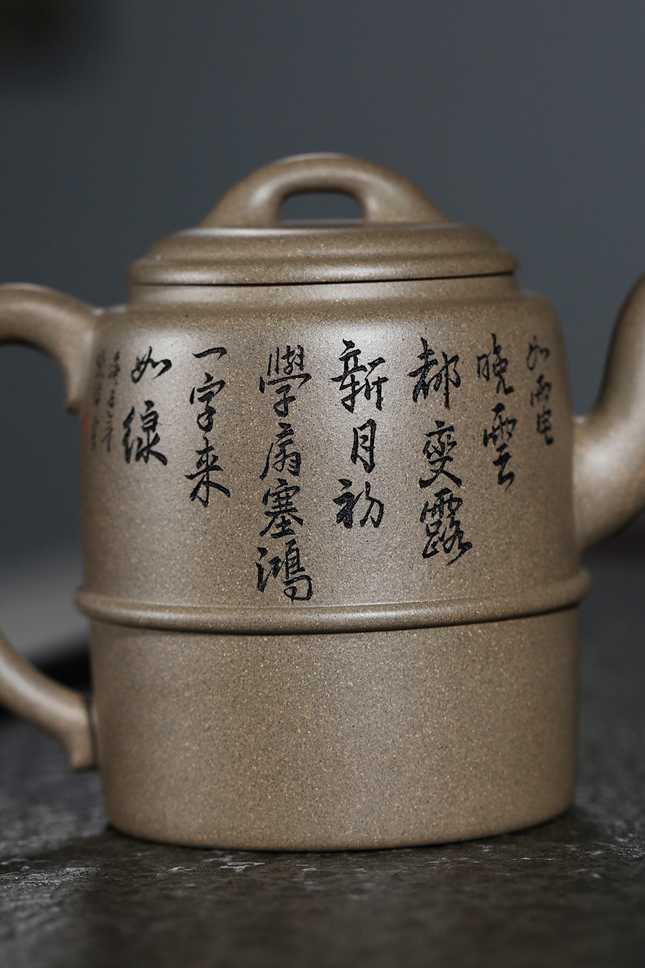 如電
晚雲
都變露
新月初
學扇塞鴻
一字来
如線